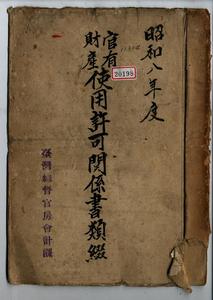 昭和八年度
官有
財産
使用許可関係書類綴
20198
臺灣總督官房會計課